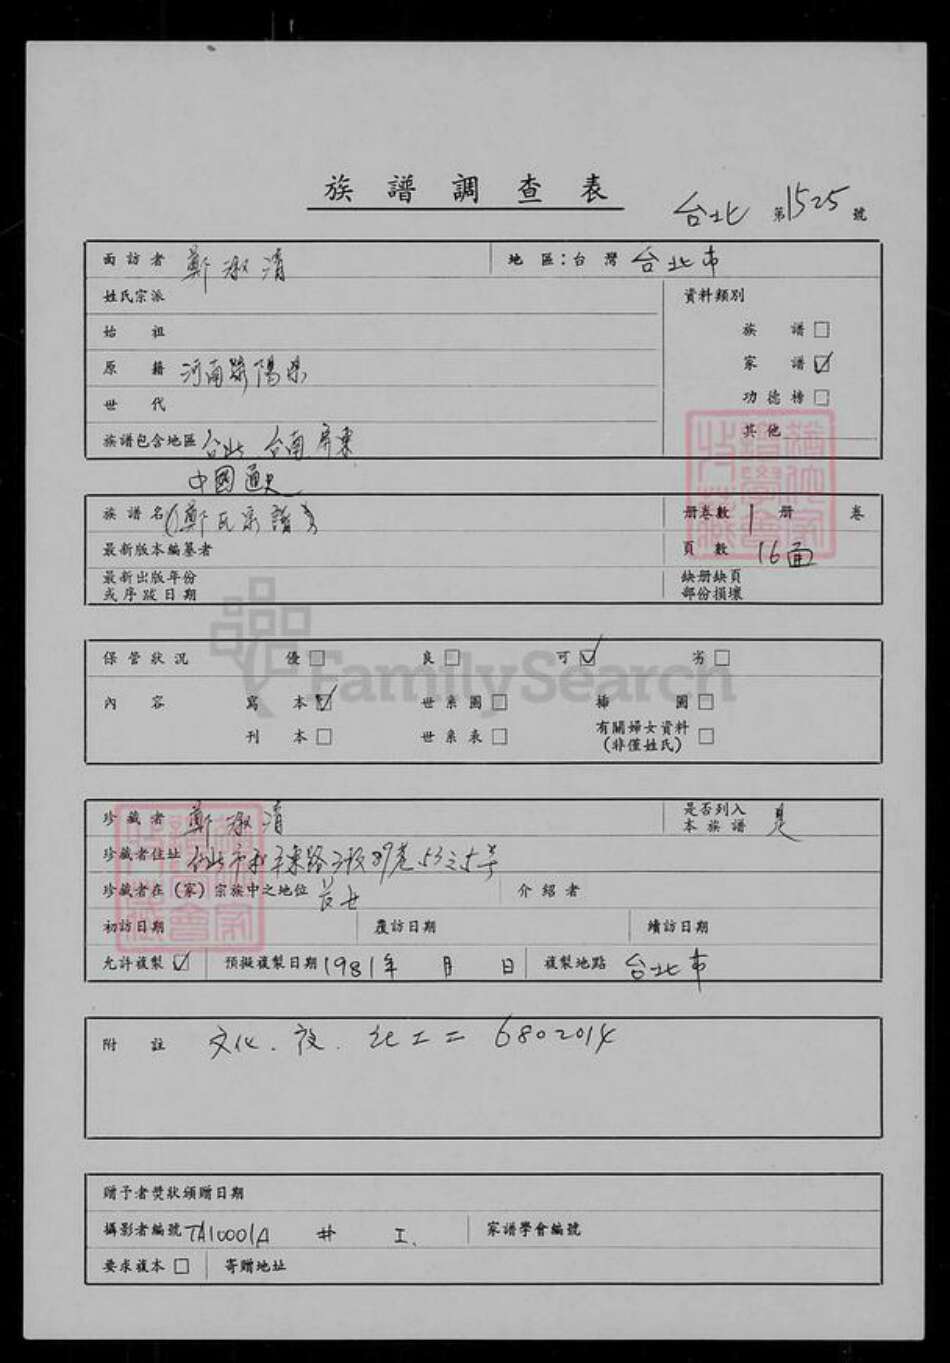 族譜調查表
台北 第1525號
面訪者 鄭淑清 地區：台灣 台北市
姓氏宗派 資料類別
始祖 族譜□
原籍 河南滎陽県 家譜☑
世代 功德榜□
族譜包含地區 台北 台南 屏東 其他
中國通史
族譜名 (鄭氏宗譜 册卷數 1 册 卷
最新版本編纂者 頁數 16面
最新出版年份 缺册缺頁
或序跋日期 部份損壞
保管狀況 優□ 良□ 可☑ 劣□
FamilySearch
內容 寫本☑ 世系圖□ 插圖□
刊本□ 世系表□ 有關婦女資料□
(非僅姓氏)
珍藏者 鄭淑清 是否列入 是
本族譜
珍藏者住址 台北市和平東路三段89巷53之5号
珍藏者在（家）宗族中之地位 長女 介紹者
初訪日期 覆訪日期 續訪日期
允許複製☑ 預擬複製日期 1981年 月 日 複製地點 台北市
附註 文化. 夜. 6802014
贈予者獎狀頒贈日期
攝影者編號 TA10001A # I. 家譜學會編號
要求複本□ 寄贈地址